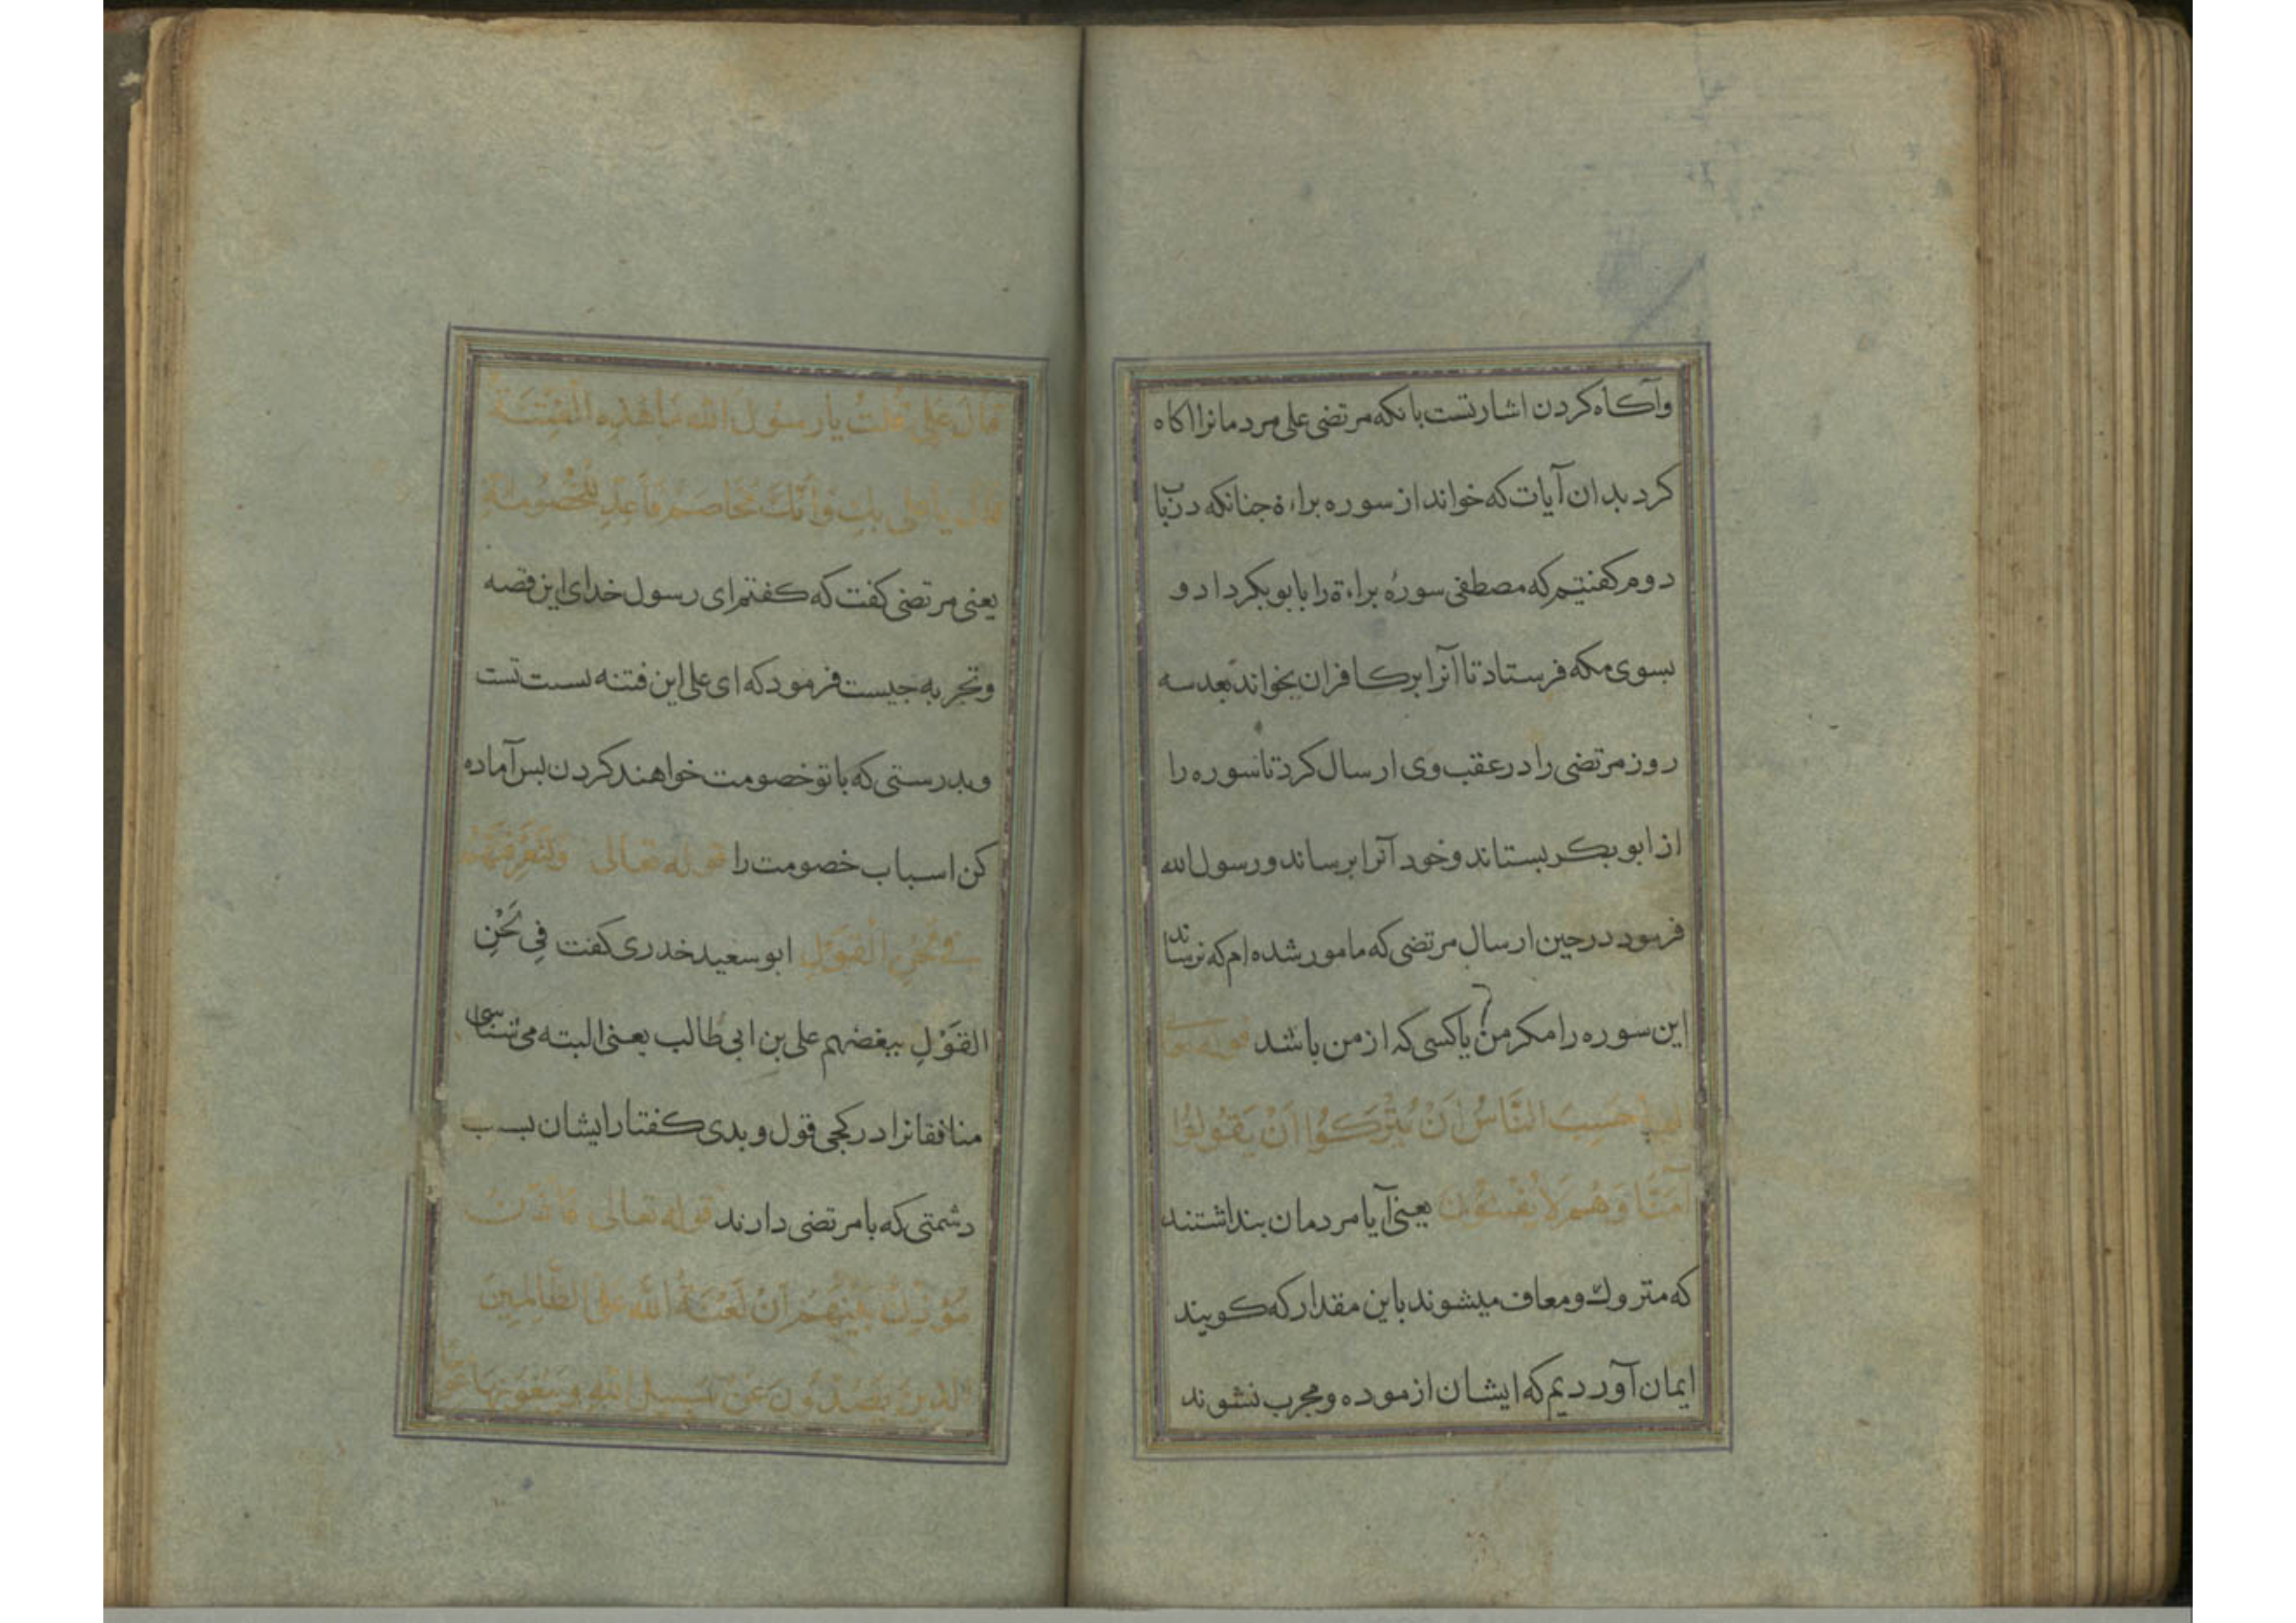 وآكاه كردن اشارتست بانكه مرتضى على مردمانرا اكاه
كرد بدان آيات كه خواند از سوره براءة جنانكه در باب
دوم كفتيم كه مصطفى سورهٔ براءة را بابو بكر داد و
بسوى مكه فرستاد تا آنرا بر كافران بخواند بعد سه
روز مرتضى را در عقب وى ارسال كرد تا سوره را
از ابو بكر بستاند و خود آنرا برساند و رسول الله
فرمود در حين ارسال مرتضى كه مامور شده ام كه نرساند
اين سوره را مكر من يا كسى كه از من باشد قوله تعا
احسب الناس ان يتركوا ان يقولوا
آمنا وهم لا يفتنون يعنى آيا مردمان بنداشتند
كه متروك و معاف ميشوند باين مقدار كه كويند
ايمان آورديم كه ايشان ازموده و مجرب نشوند
قال على قلت يا رسول الله ما هذه الفتنة
قال يا على بك وانك مخاصم فاعد للخصومة
يعنى مرتضى كفت كه كفتم اى رسول خداى اين قصه
و تجربه جيست فرمود كه اى على اين فتنه بسبب تست
و بدرستى كه با تو خصومت خواهند كردن بس آماده
كن اسباب خصومت را قوله تعالى ولتعرفنهم
فى لحن القول ابو سعيد خدرى كفت فِى لَحْنِ
القَوْلِ ببغضهم على بن ابى طالب يعنى البته مى شناسى
منافقانرا در كجى قول و بدى كفتار ايشان بسبب
دشمنى كه با مرتضى دارند قوله تعالى فأذن
مؤذن بينهم ان لعنة الله على الظالمين
الذين يصدون عن سبيل الله ويبغونها عوجا